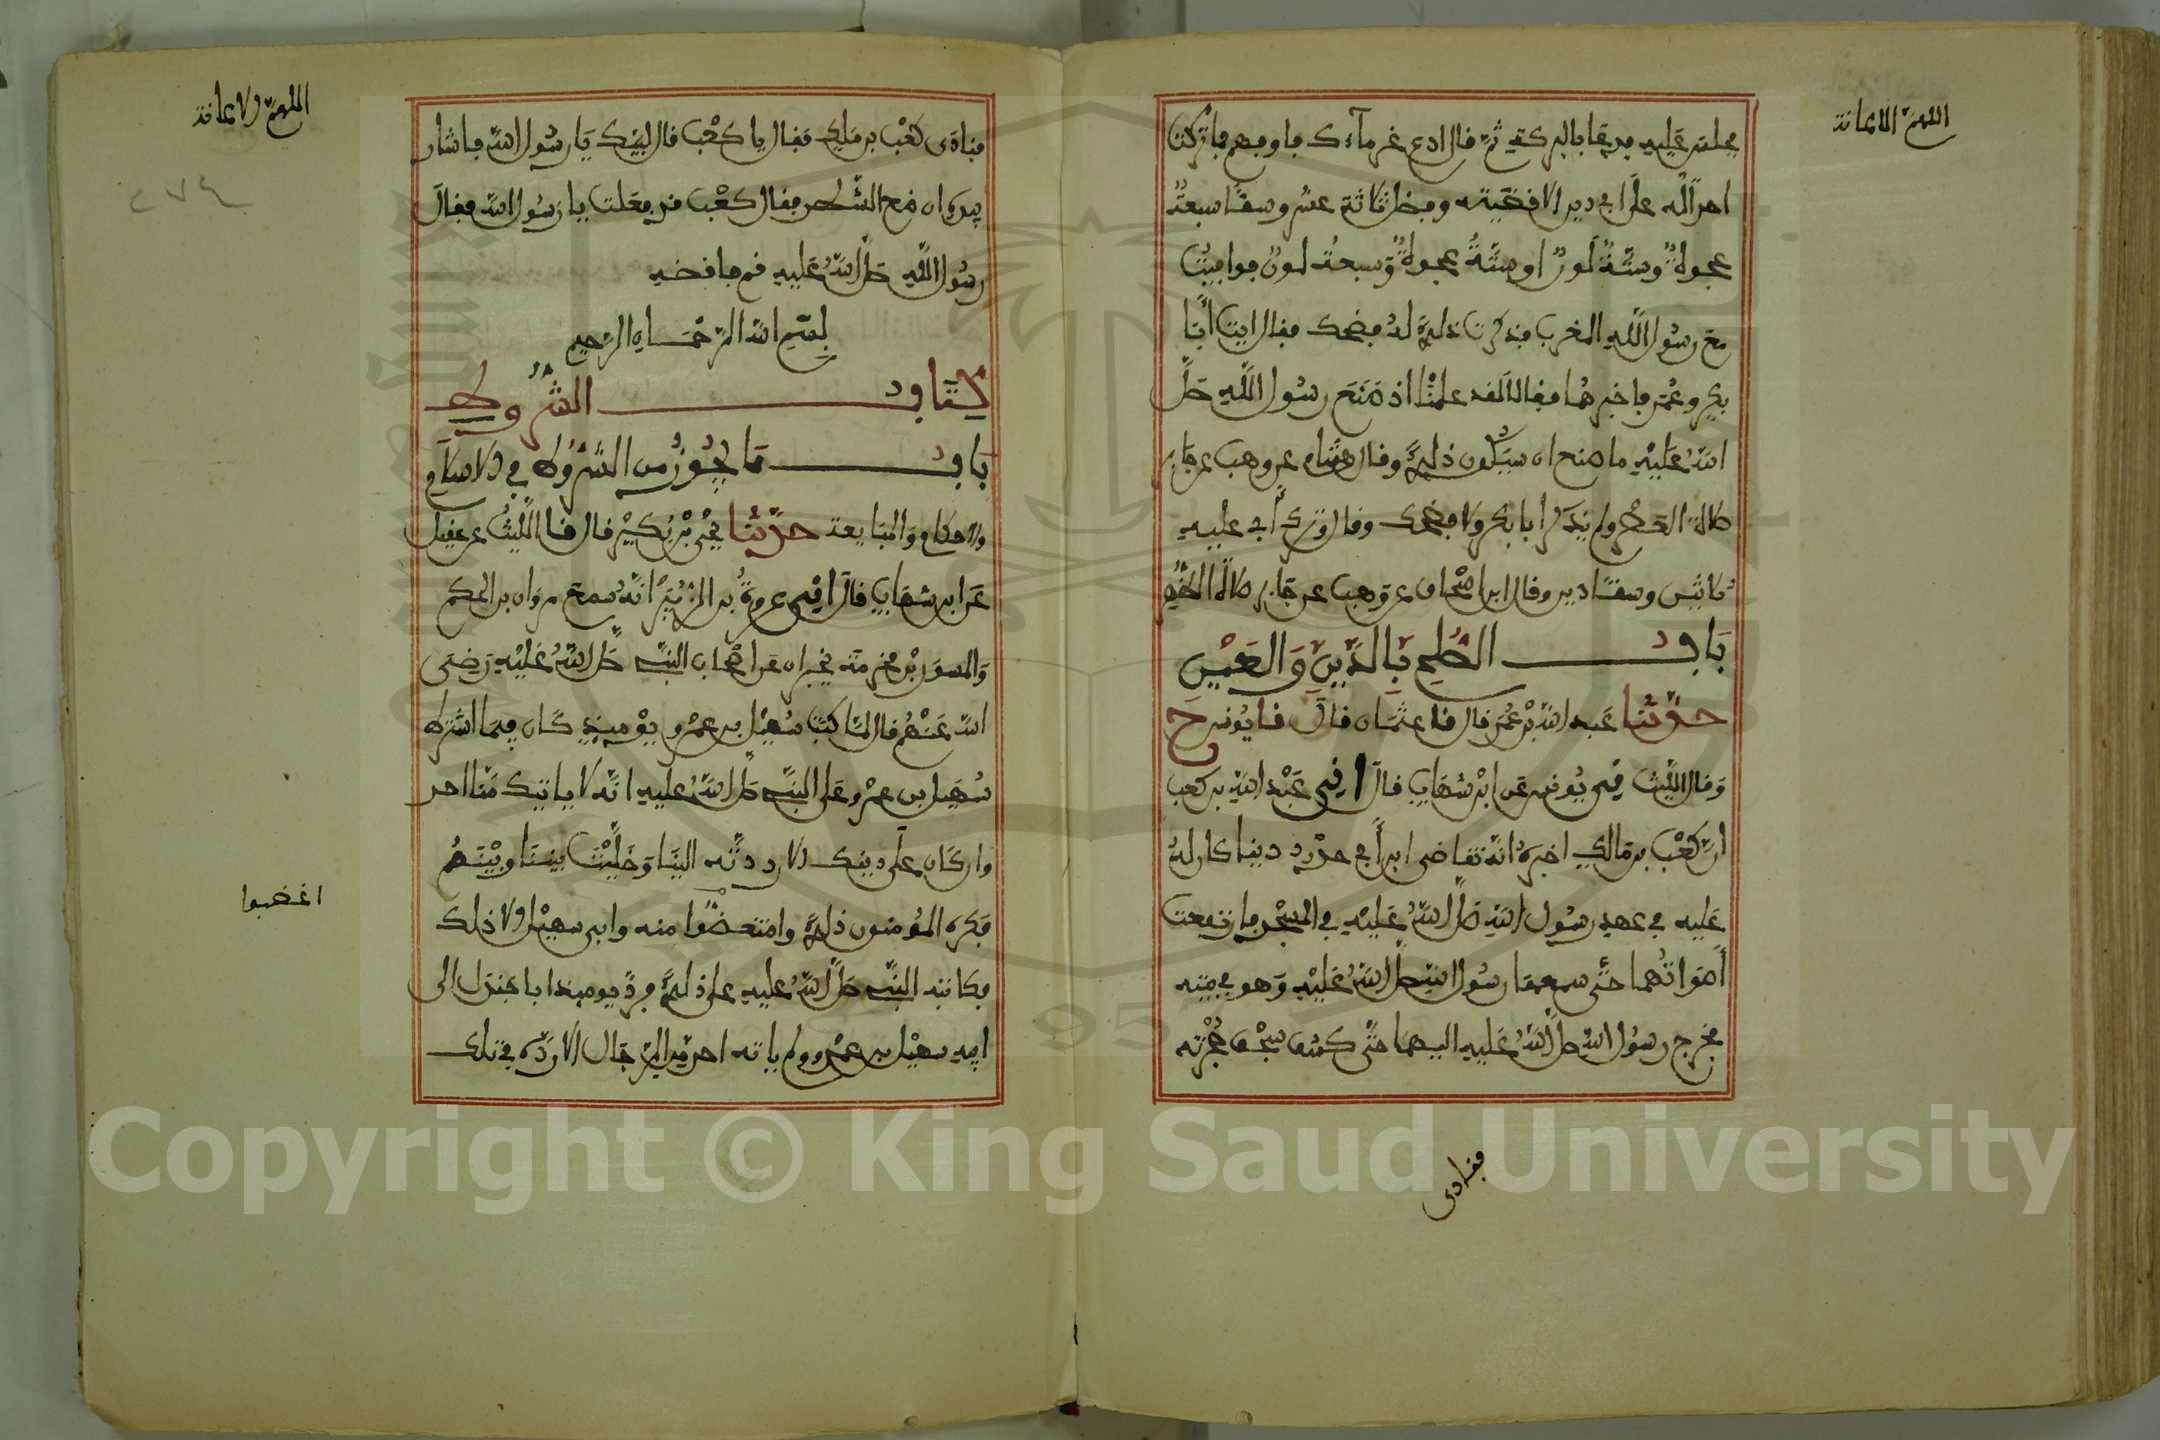 اللهم الاعانة
فجلس عليه فدعا بالبركة ثم قال ادع غرماءك فاوفهم فما تركت
احدا له على ابي دين الا قضيته وفضل ثلاثة عشر وسقا سبعة
عجوة وستة لون او ستة عجوة وسبعة لون فوافيت
مع رسول الله المغرب فذكرت ذلك له فضحك فقال ايت ابا
بكر وعمر فاخبرهما فقالا لقد علمنا اذ صنع رسول الله صلى
الله عليه ما صنع ان سيكون ذلك وقال هشام عن وهب عن جابر
صلاة العصر ولم يذكر ابا بكر ولا فضحك وقال وترك أبي عليه
ثلاثين وسقا دين وقال ابن اسحاق عن وهب عن جابر صلاة الظهر
باب الصلح بالدين والعين
حدثنا عبد الله بن عمر قال نا عثمان قال نا يونس ح
وقال الليث ني يونس عن ابن شهاب قال اني عبد الله بن كعب
ان كعب بن مالك اخبره انه تقاضى ابن أبي حدرد دينا كان له
عليه في عهد رسول الله صلى الله عليه في المسجد فارتفعت
أصواتهما حتى سمعها رسول الله صلى الله عليه وهو في بيته
فخرج رسول الله صلى الله عليه اليهما حتى كشف سجف حجرته
فنادى
اللهم الاعانة
٢٧٤
فنادى كعب بن ملك فقال يا كعب قال لبيك يا رسول الله فاشار
بيده ان ضع الشطر فقال كعب قد فعلت يا رسول الله فقال
رسول الله صلى الله عليه قم فاقضه
بسم الله الرحمان الرحيم
كتاب الشروط
باب ما يجوز من الشروط في الاسلام
والاحكام والمبايعة حدثنا يحيى بن بكير قال نا الليث عن عقيل
عن ابن شهاب قال اني عروة بن الزبير انه سمع مروان بن الحكم
والمسور بن مخرمة يخبران عن اصحاب النبي صلى الله عليه رضي
الله عنهم قال لما كتب سهيل بن عمرو يومئذ كان فيما اشترط
سهيل بن عمرو على النبي صلى الله عليه انه لا ياتيك منا احد
وان كان على دينك الا رددته الينا وخليت بيننا وبينه
فكره المؤمنون ذلك وامتعضوا منه وابى سهيل الا ذلك
اغضبوا
فكاتبه النبي صلى الله عليه على ذلك فرد يومئذ ابا جندل الى
ابيه سهيل بن عمرو ولم ياته احد من الرجال الا رده في تلك
Copyright © King Saud University